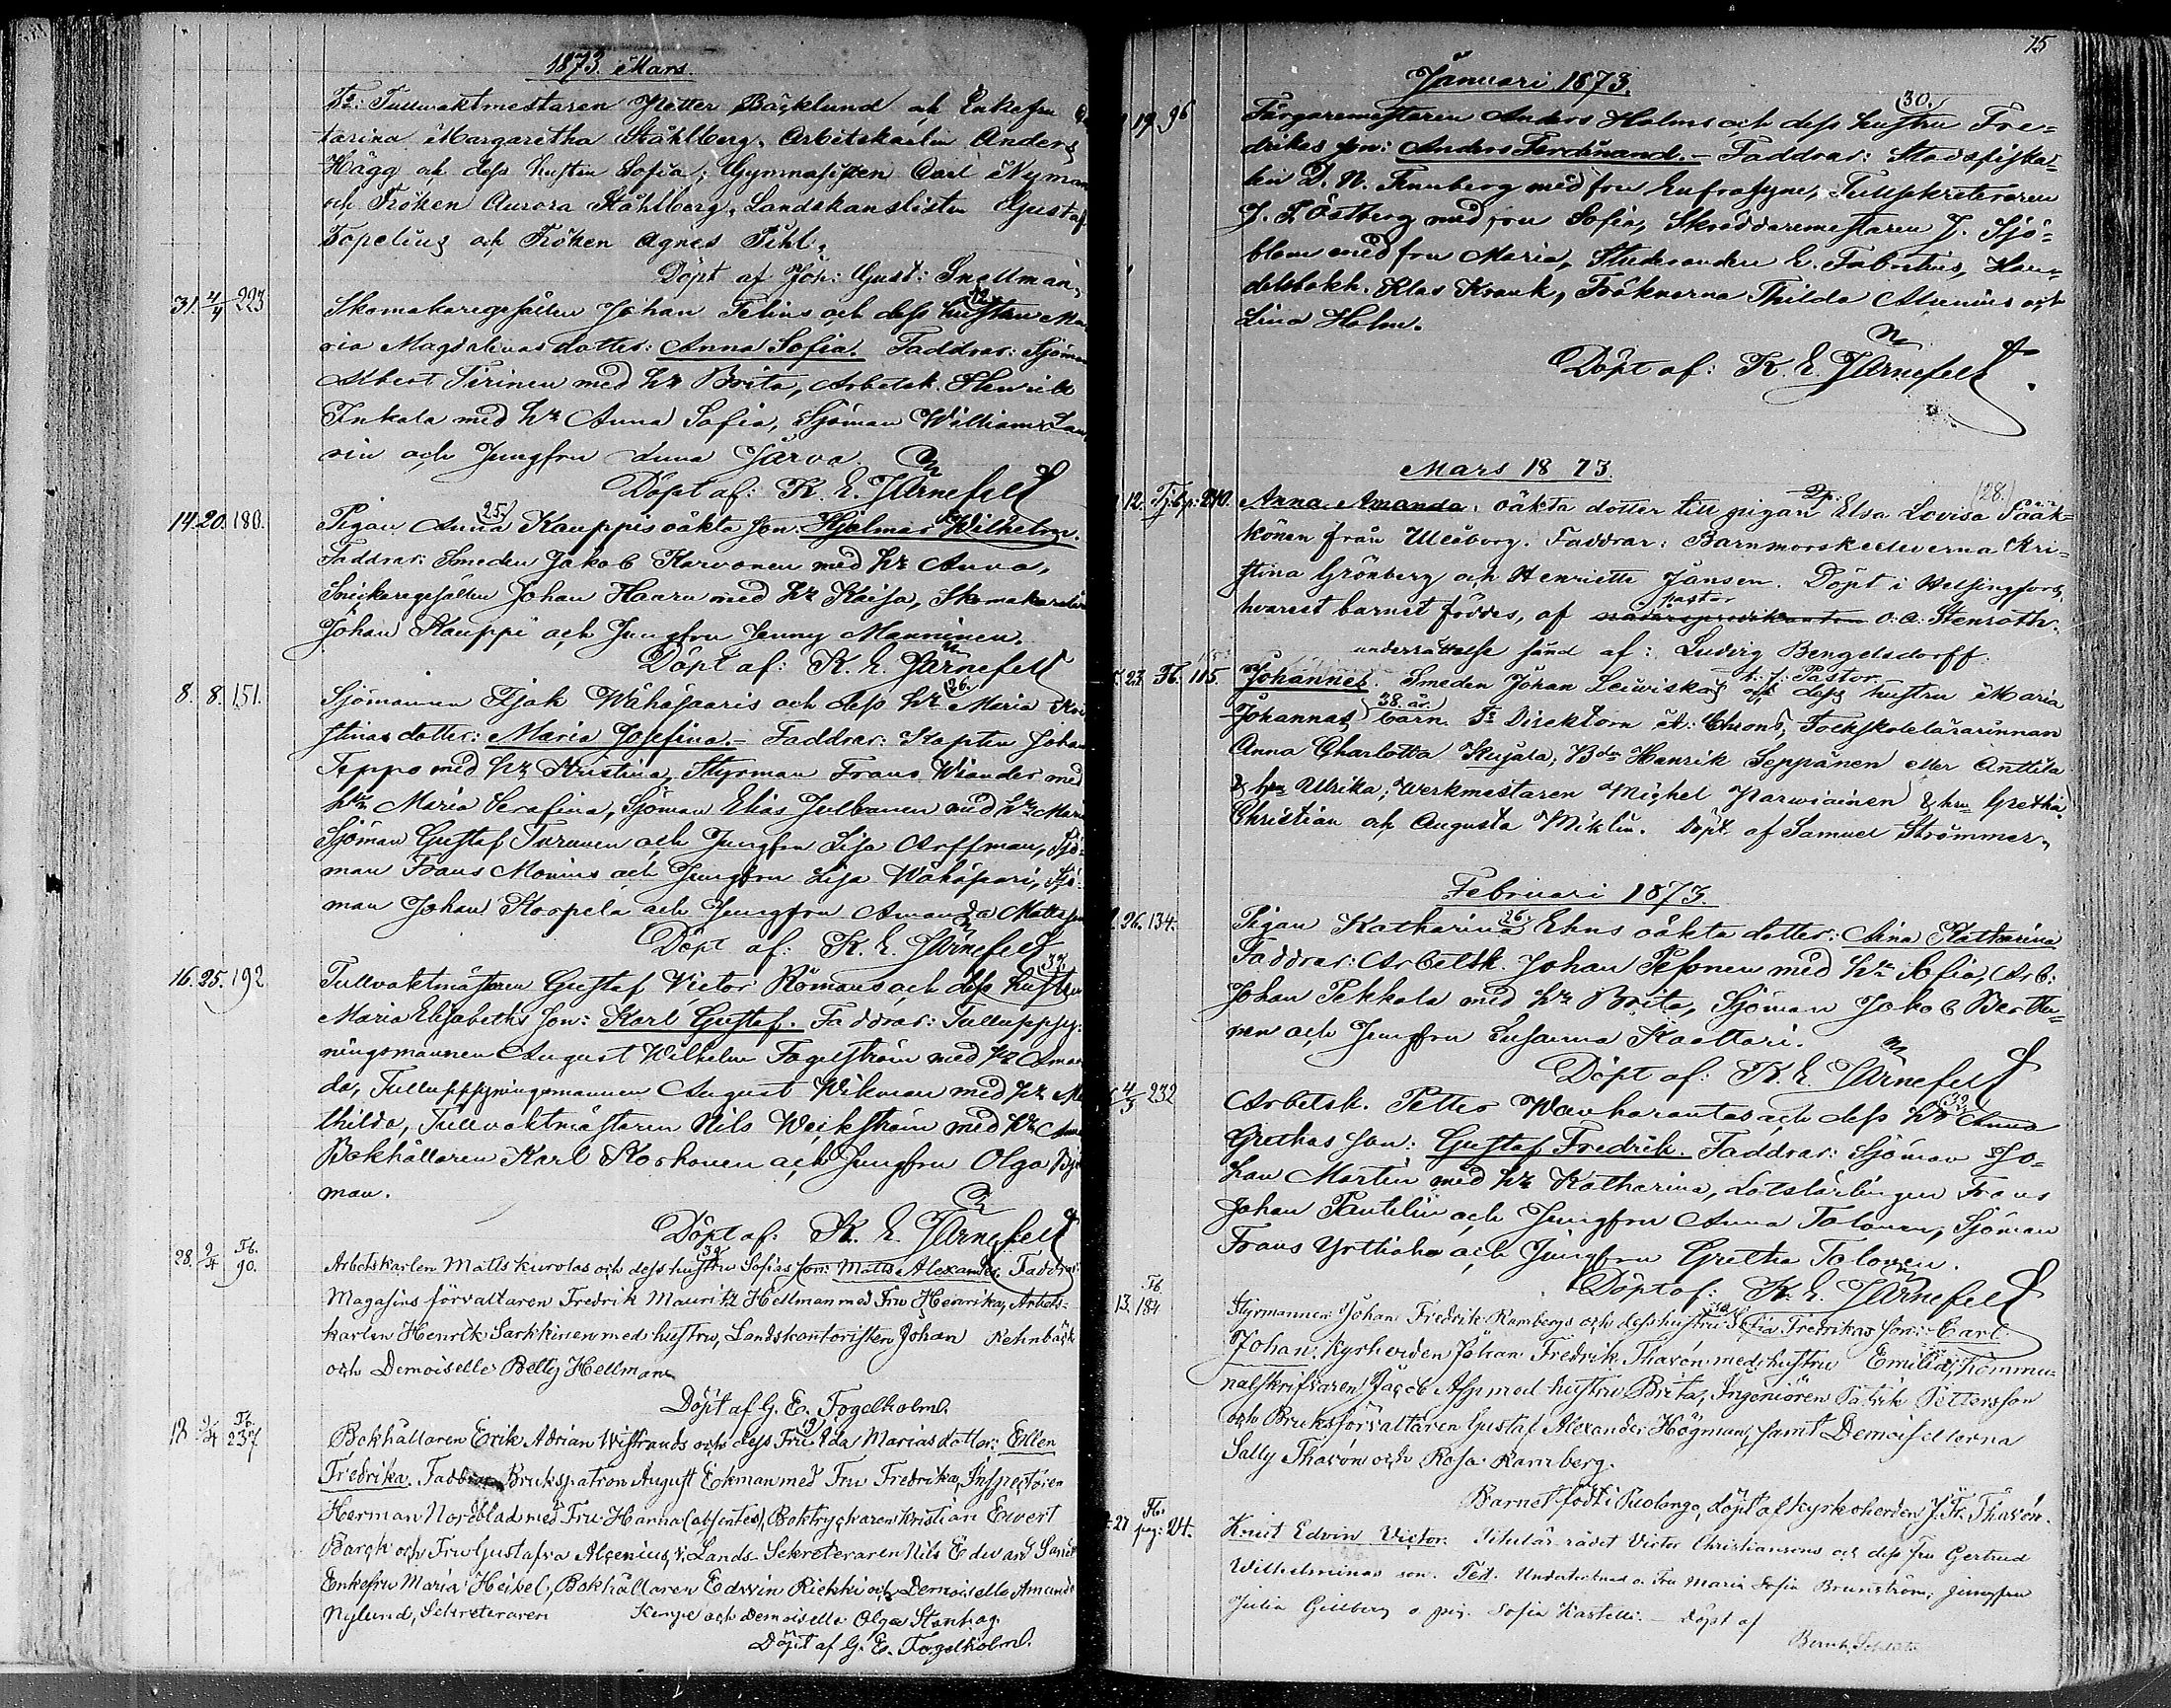 1873. Mars.
Ts: Tullvaktmestaren Petter Bäcklund och Enkefru
tarina Margaretha Ståhlberg, Arbetskarlen Anders
Hägg och dess hustru Sofia; Gymnasisten Carl Nyman
och Fröken Aurora Ståhlberg, Landskanslisten Gustaf
Topelius och Fröken Agnes Pihl.
Döpt af Joh: Gust: Snellman.
31. 4/4 223
Skomakaregesällen Johan Pelius och dess hustru Ma
ria Magdalenas dotter: Anna Sofia. Faddrar: Sjöman
Albert Tirinen med hr Brita, Arbetsk. Henrik
Inkala med hr Anna Sofia, Sjöman William
rin och Jungfru Anna Järva.
Döpt af: K. E. Järnefelt
14. 20. 180.
25.
Pigan Anna Kauppis oäkta son: Hjalmar Wilhelm.
Faddrar: Smeden Jakob Karvonen med hr Anna,
Snickaregesällen Johan Haaru med hr Kaisa, Skomakare
Johan Kauppi och Jungfru Jenny Manninen.
Döpt af: K. E. Järnefelt
8. 8. 151.
26.
Sjömannen Isak Wähäsaaris och dess hr Maria Kri
stinas dotter: Maria Josefina. Faddrar: Kapten Johan
Teppo med hr Kristina, Styrman Frans Wiander med
hr Maria Serafina, Sjöman Elias Julkunen med hr Maria
Sjöman Gustaf Turunen och Jungfru Lisa Arffman, Sjö-
man Frans Monius och Jungfru Lisa Wähäsaari, Sjö-
man Johan Korpela och Jungfru Amanda Mattsson
Döpt af: K. E. Järnefelt
16. 25. 192
Tullvaktmästaren Gustaf Victor Römans och dess hustru
Maria Elisabeths son: Karl Gustaf. Faddrar: Tulluppsy:
ningsmannen August Wilhelm Fagelström med hr Aman
da, Tulluppsyningsmannen August Wikman med hr Ma
thilda, Tullvaktmästaren Nils Weckström med hr
Bokhållaren Karl Korhonen och Jungfru Olga
man.
Döpt af: K. E. Järnefelt
28. 9/4 Fb. 90.
Arbetskarlen Matts Kurolas och dess hustru Sofias son: Matts Alexander. Faddrar:
Magasins förvaltaren Fredrik Mauritz Hellman med Fru Henrika, Arbets-
karlen Henrik Sarkkinen med hustru, Landskontoristen Johan Rehnbäck
och Demoiselle Betty Hellman
Döpt af G. E. Fogelholm.
18 9/4 Fb. 237
Bokhållaren Erik Adrian Wistrands och dess Fru Ida Marias dotter: Ellen
Fredrika. Faddrar Brukspatron August Ekman med Fru Fredrika, Inspectören
Herman Nordblad med Fru Hanna (absentes), Boktryckaren Kristian Evert
Barck och Fru Gustafva Alcenius, v. Lands Sekreteraren Nils Edvard
Enkefru Maria Heikel, Bokhållaren Edvin Riekki och Demoiselle Amanda
Nylund, Sekreteraren och Demoiselle Olga Stenhag.
Döpt af G. E. Fogelholm.
75
Januari 1873.
19. 96
30.
Färgaremestaren Anders Holms och dess hustru Fre-
drikas son: Anders Ferdinand. Faddrar: Stadsfiska-
len D. N. Finnberg med fru Eufrosyne, Tullsekreteraren
J. F. Östberg med fru Sofia, Skräddaremestaren J. Sjö-
blom med fru Maria, Studeranden E. Fabritius, Han-
delsbokh. Klas Krank, Fröknarna Thilda Alcenius och
Lina Holm.
Döpt af: K. E. Järnefelt
Mars 1873.
12. Tjb. p: 240.
(28.)
Anna Amanda, oäkta dotter till pigan Elsa Lovisa Pääk-
könen från Uleåborg. Faddrar: Barnmorskeeleverna Kri-
stina Grönberg och Henriette Jansen. Döpt i Helsingfors,
hvarest barnet föddes, af pastor O. A. Stenroth.
underrättelse sänd af: Ludvig Bengelsdorff.
t. f. Pastor
23. Fb. 105.
Johannes. Smeden Johan Leiviskas och dess hustru Maria
38. år
Johannas barn. Ts Direktorn A: Chsons, Folkskolelärarinnan
Anna Charlotta Kujala, Bdn Henrik Seppänen eller Anttila
& hru Ullrika; Werkmestaren Michel Parwiainen & hru Gretha.
Christian och Augusta Miklin. Döpt af Samuel Strömmer.
Februari 1873.
26. 134.
26.
Pigan Katharina Ehns oäkta dotter: Aina Katharina
Faddrar: Arbetsk. Johan Pesonen med hr Sofia, Arb:
Johan Pekkala med hr Brita, Sjöman Jakob Bertu-
nen och Jungfru Susanna Kaattari.
Döpt af: K. E. Järnefelt
4/3 232
32
Arbetsk. Petter Wanharantas och dess hr Anna
Grethas son: Gustaf Fredrik. Faddrar: Sjöman Jo-
han Martin med hr Katharina, Lotslärlingen Frans
Johan Pantelin och Jungfru Anna Tolonen, Sjöman
Frans Yrttiaho och Jungfru Gretha Tolonen.
Döpt af: K. E. Järnefelt
13. Fb. 184
Styrmannen Johan Fredrik Rambergs och dess hustru Sofia Fredrikas son: Carl
Johan. Kyrkherden Johan Fredrik Thavón med hustru Emilia, Kommu-
nalskrifvaren Jacob Asp med hustru Brita, Ingeniören Patrik Pettersson
och Bruksförvaltaren Gustaf Alexander Högman, samt Demoisellerna
Sally Thavón och Rosa Ramberg.
Barnet födt i Puolango, döpt af kyrkoherden J. Fr. Thavón.
27 Fb. pag: 24.
Knut Edvin Victor. Titulär rådet Victor Christiansens och dess fru Gertrud
Wilhelminas son. Test. Undertecknad o. Fru Maria Sofia Brunström, jungfru
Julia Gellberg o pig. Sofia Kastelli. Döpt af